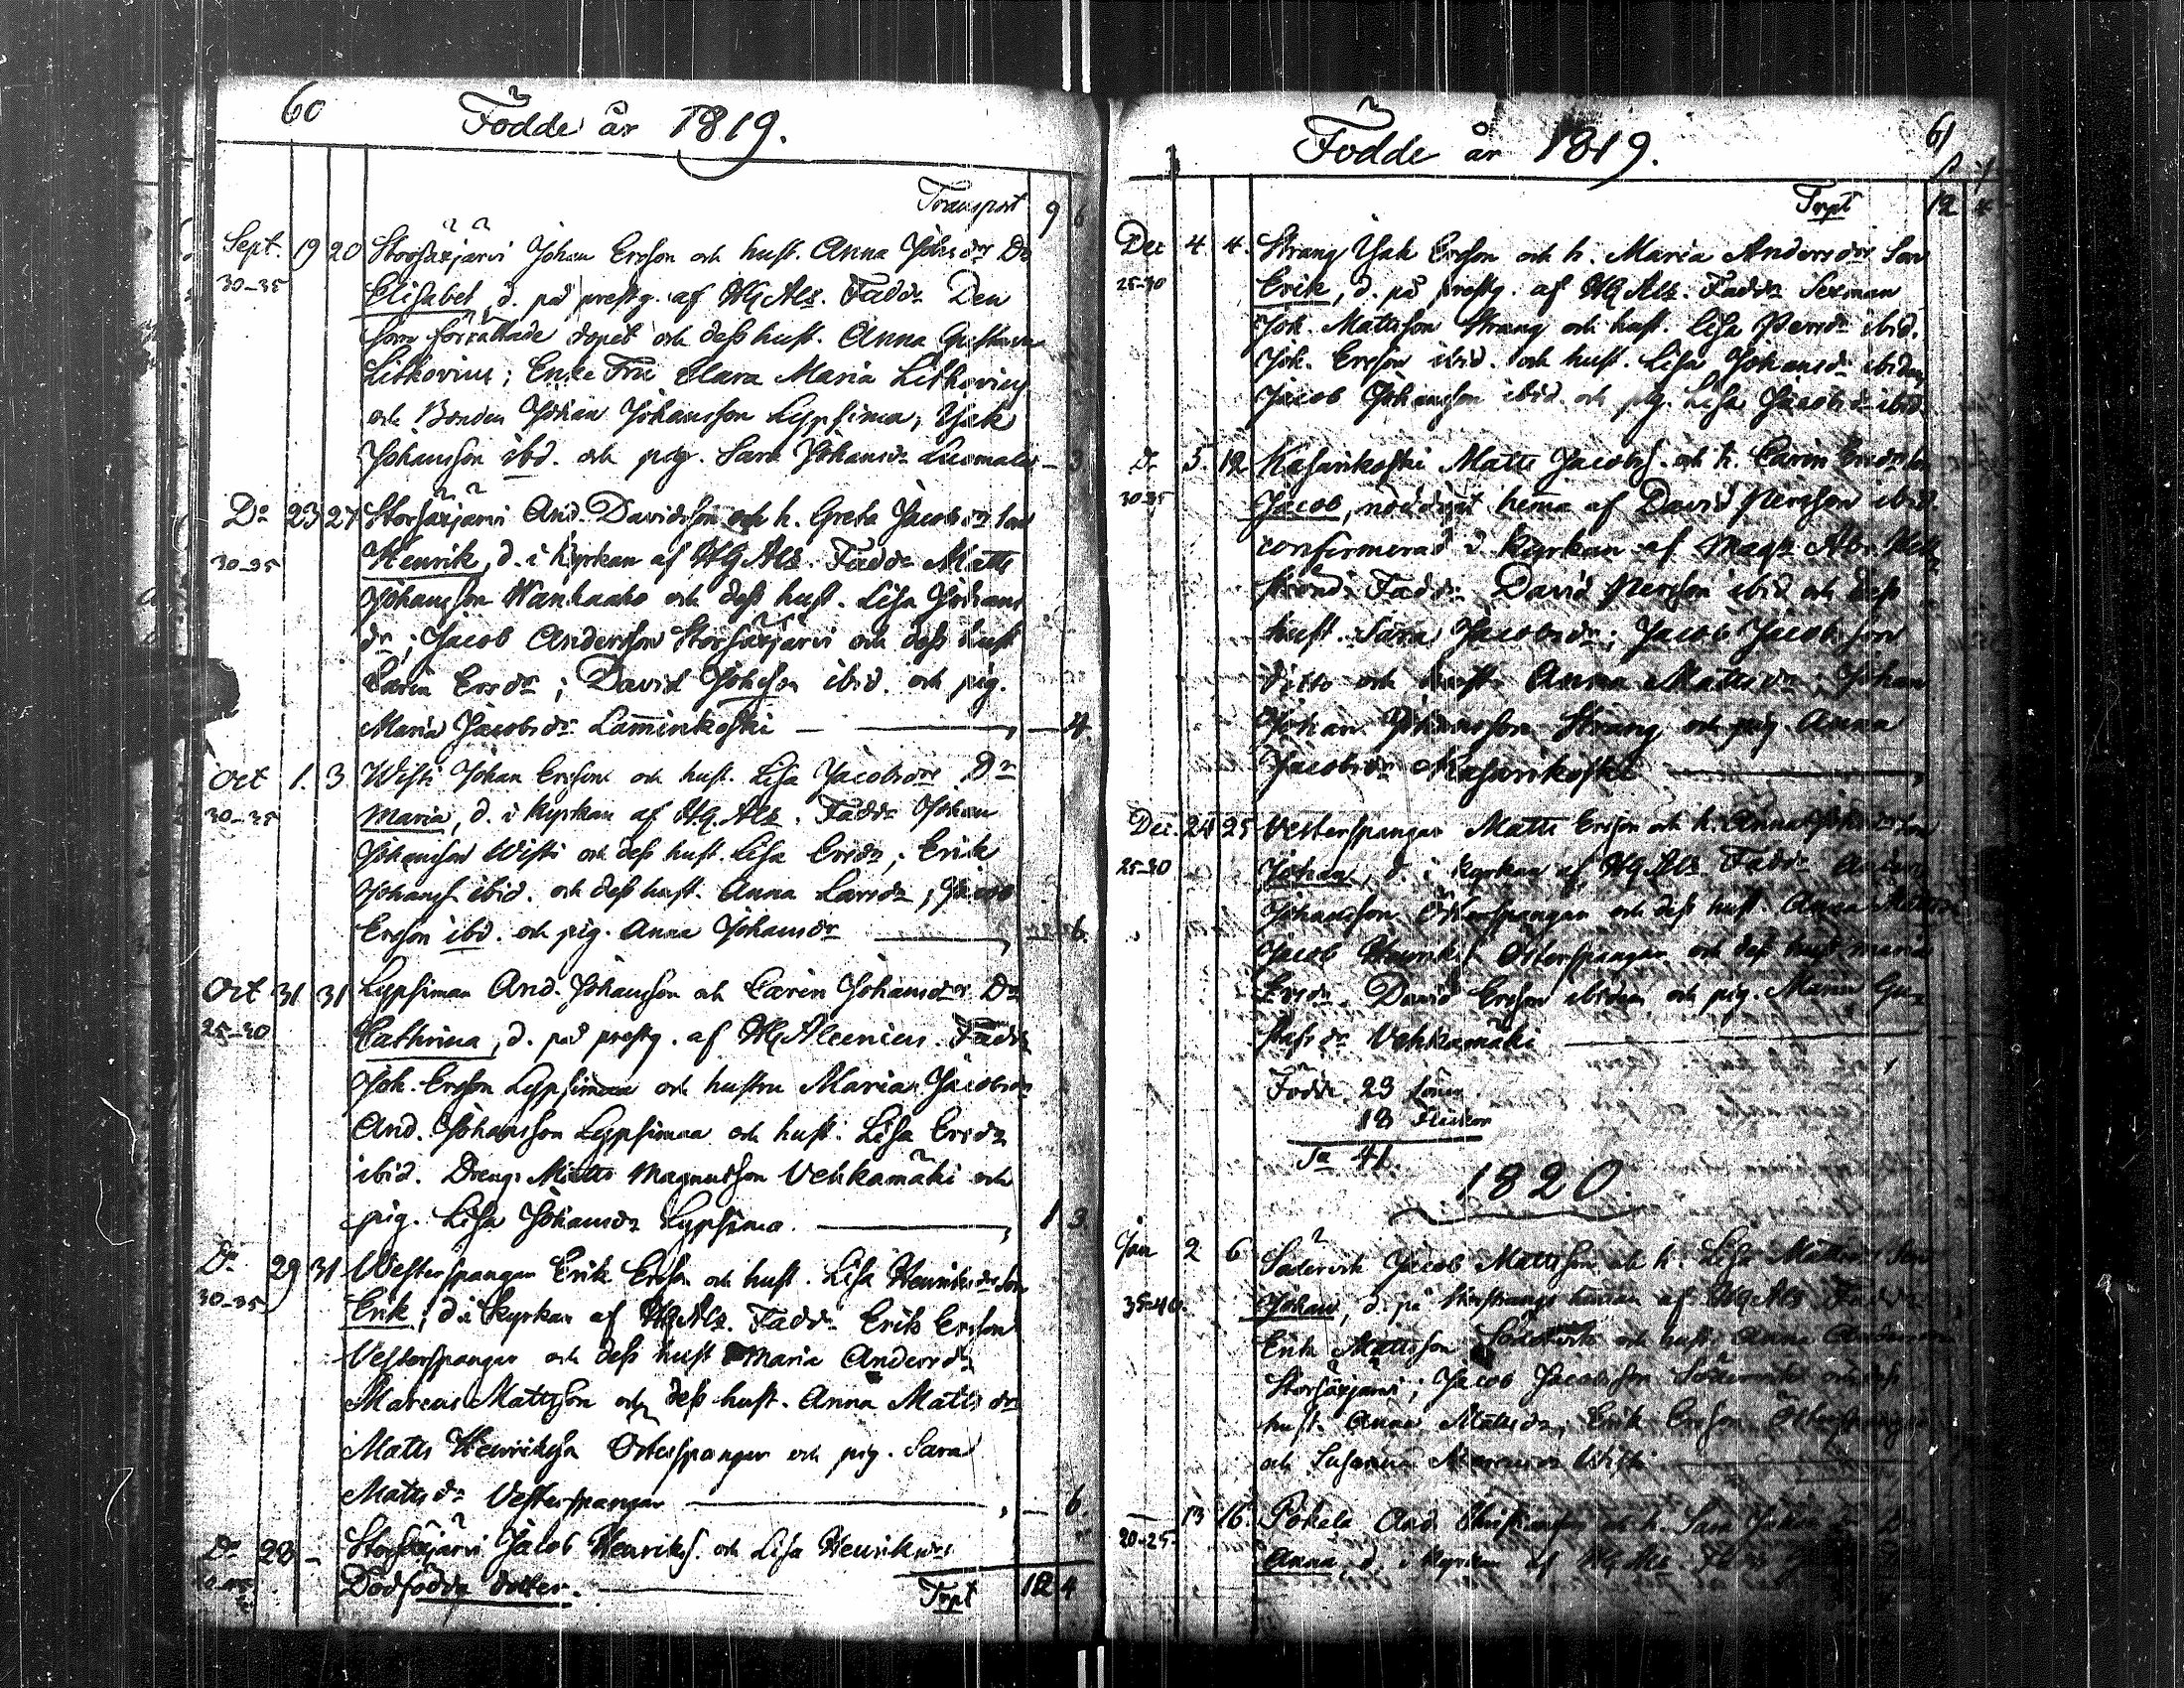 60
Födde år 1819.
Transport 9 6
Sept. 19 20 Storsäxjärvi Johan Ersson och hust. Anna Johsdr Dr
30-35 Elisabet, d. på prestg. af HG Als. Fadd. Den
som förrättade dopet och dess hust. Anna Gustava
Lithovius; Enke Fru Clara Maria Lithovius
och Bonden Johan Johansson Lypsima; Isak
Johansson ibd. och pig. Sara Johansdr Luomala — 3
Do 23 27 Storsäxjärvi And. Davidsson och h. Greta Jacobsdr son
30-35 Henrik, d. i kyrkan af HG Als. Fadd. Matts
Johansson Wanhaaho och dess hust. Lisa Johans
dr; Jacob Andersson Storsäxjärvi och dess hust
Carin Ersdr; David Johsson ibid. och pig.
Maria Jacobsdr Lammikoski — — 4.
Oct 1. 3 Wisti Johan Erssons och hust. Lisa Jacobsdrs Dr
30-35 Maria, d. i kyrkan af H.G. Als. Fadd. Johan
Johansson Wisti och dess hust. Lisa Ersdr; Erik
Johanss. ibid. och dess hust. Anna Larsdr; Jacob
Ersson ibd. och pig. Anna Johansdr — 6.
Oct 31 31 Lypsimaa And. Johansson och Carin Johansdrs Dr
25-30 Cathrina, d. på prestg. af HG Alcenius. Fadd
Joh. Ersson Lypsimaa och hustru Maria Jacobsdr
And. Johansson Lypsimaa och hust. Lisa Ersdr
ibid. Dreng. Matts Magnusson Vehkamäki och
pig. Lisa Johansdr Lypsima. — 1 3
Do 29 31 Westerspangar Erik Ersson och hust. Lisa Henriksdr son
30-35 Erik, d. i kyrkan af HG Als. Fadd. Erik Ersson
Vesterspangar och dess hust Maria Andersdr
Marcus Mattsson och dess hust. Anna Mattsdr
Matts Henriksson Österspangar och pig. Sara
Mattsdr Vesterspangar — 6
Do 28 – Storsäxjärvi Jacob Henrikss. och Lisa Henriksdrs
Dödfödda dotter. — Trpt 12 4
61
Födde år 1819.
Trpt 12 4
Dec 4 4. Strang Isak Ersson och h. Maria Andersdrs Son
25-30 Erik, d. på prestg. af HG Als. Fadd. Sexman
Joh. Mattsson Strang och hust. Lisa Persdr ibid.
Joh. Ersson ibid. och hust. Lisa Johansdr ibidem
Jacob Johansson ibid. och pig. Lisa Jacobsdr ibid.
Do 5. 12 Kasarikoski Matts Jacobss. och h. Carin Ersdr son
30-35 Jacob, nöddöpt hemma af David Persson ibid.
confirmerad i kyrkan af Mag.
Fadd. David Persson ibid och dess
hust. Sara Jacobsdr; Jacob Jacobsson
ditto och hust. Anna Mattsdr; Johan
Johan Johansson Strang och pig. Anna
Jacobsdr Kasarikoski —
Dec. 24 25 Vesterspangar Matts Ersson och h. Anna Johsdr son
25-30 Johan, d. i kyrkan af HG Als. Fadd. Anders
Johansson Österspangar och dess hust. Anna Mattsdr
Jacob Henriks. Österspangar och dess hust. Maria
Ersdr. David Ersson ibidem och pig. Maria Gu-
stafsdr Vehkamäki —
Födde 23 Söner
18 Flickor
Sa 41.
1820.
Jan 2 6 Södervik Jacob Mattsson och h. Lisa Mattsdrs Son
35-40. Johan, d. på af HG Als. Fadd.
Erik Mattsson Södervik och hust. Anna Andersdr
Storsäxjärvi; Jacob Jacobsson Södervik och dess
hust. Anna Mattsdr, Erik Ersson Österspangar
och Susanna Marcusdr Wisti —
— 13 16. Pokela And. och h. Sara
20-25. Anna, d. i kyrkan af HG Als. Fadd.